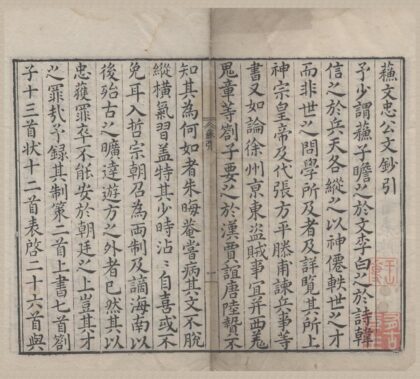 蘓文忠公文鈔引
予少謂蘓子瞻之於文李白之於詩韓
信之於兵天各縱之以神僊軼世之才
而非世之問學所及者及詳覽其所上
神宗皇帝及代張方平滕甫諫兵事等
書又如論徐州京東盗賊事宜并西羗
鬼章等劄子要之於漢賈誼唐陸贄不
知其為何如者朱晦菴嘗病其文不脫
縱橫氣習盖特其少時沾沾自喜或不
免耳入哲宗朝召為兩制及謫海南以
後殆古之曠達遊方之外者已然其以
忠獲罪卒不能安於朝廷之上豈其才
之罪哉予録其制策二首上書七首劄
子十三首狀十二首表啓二十六首與